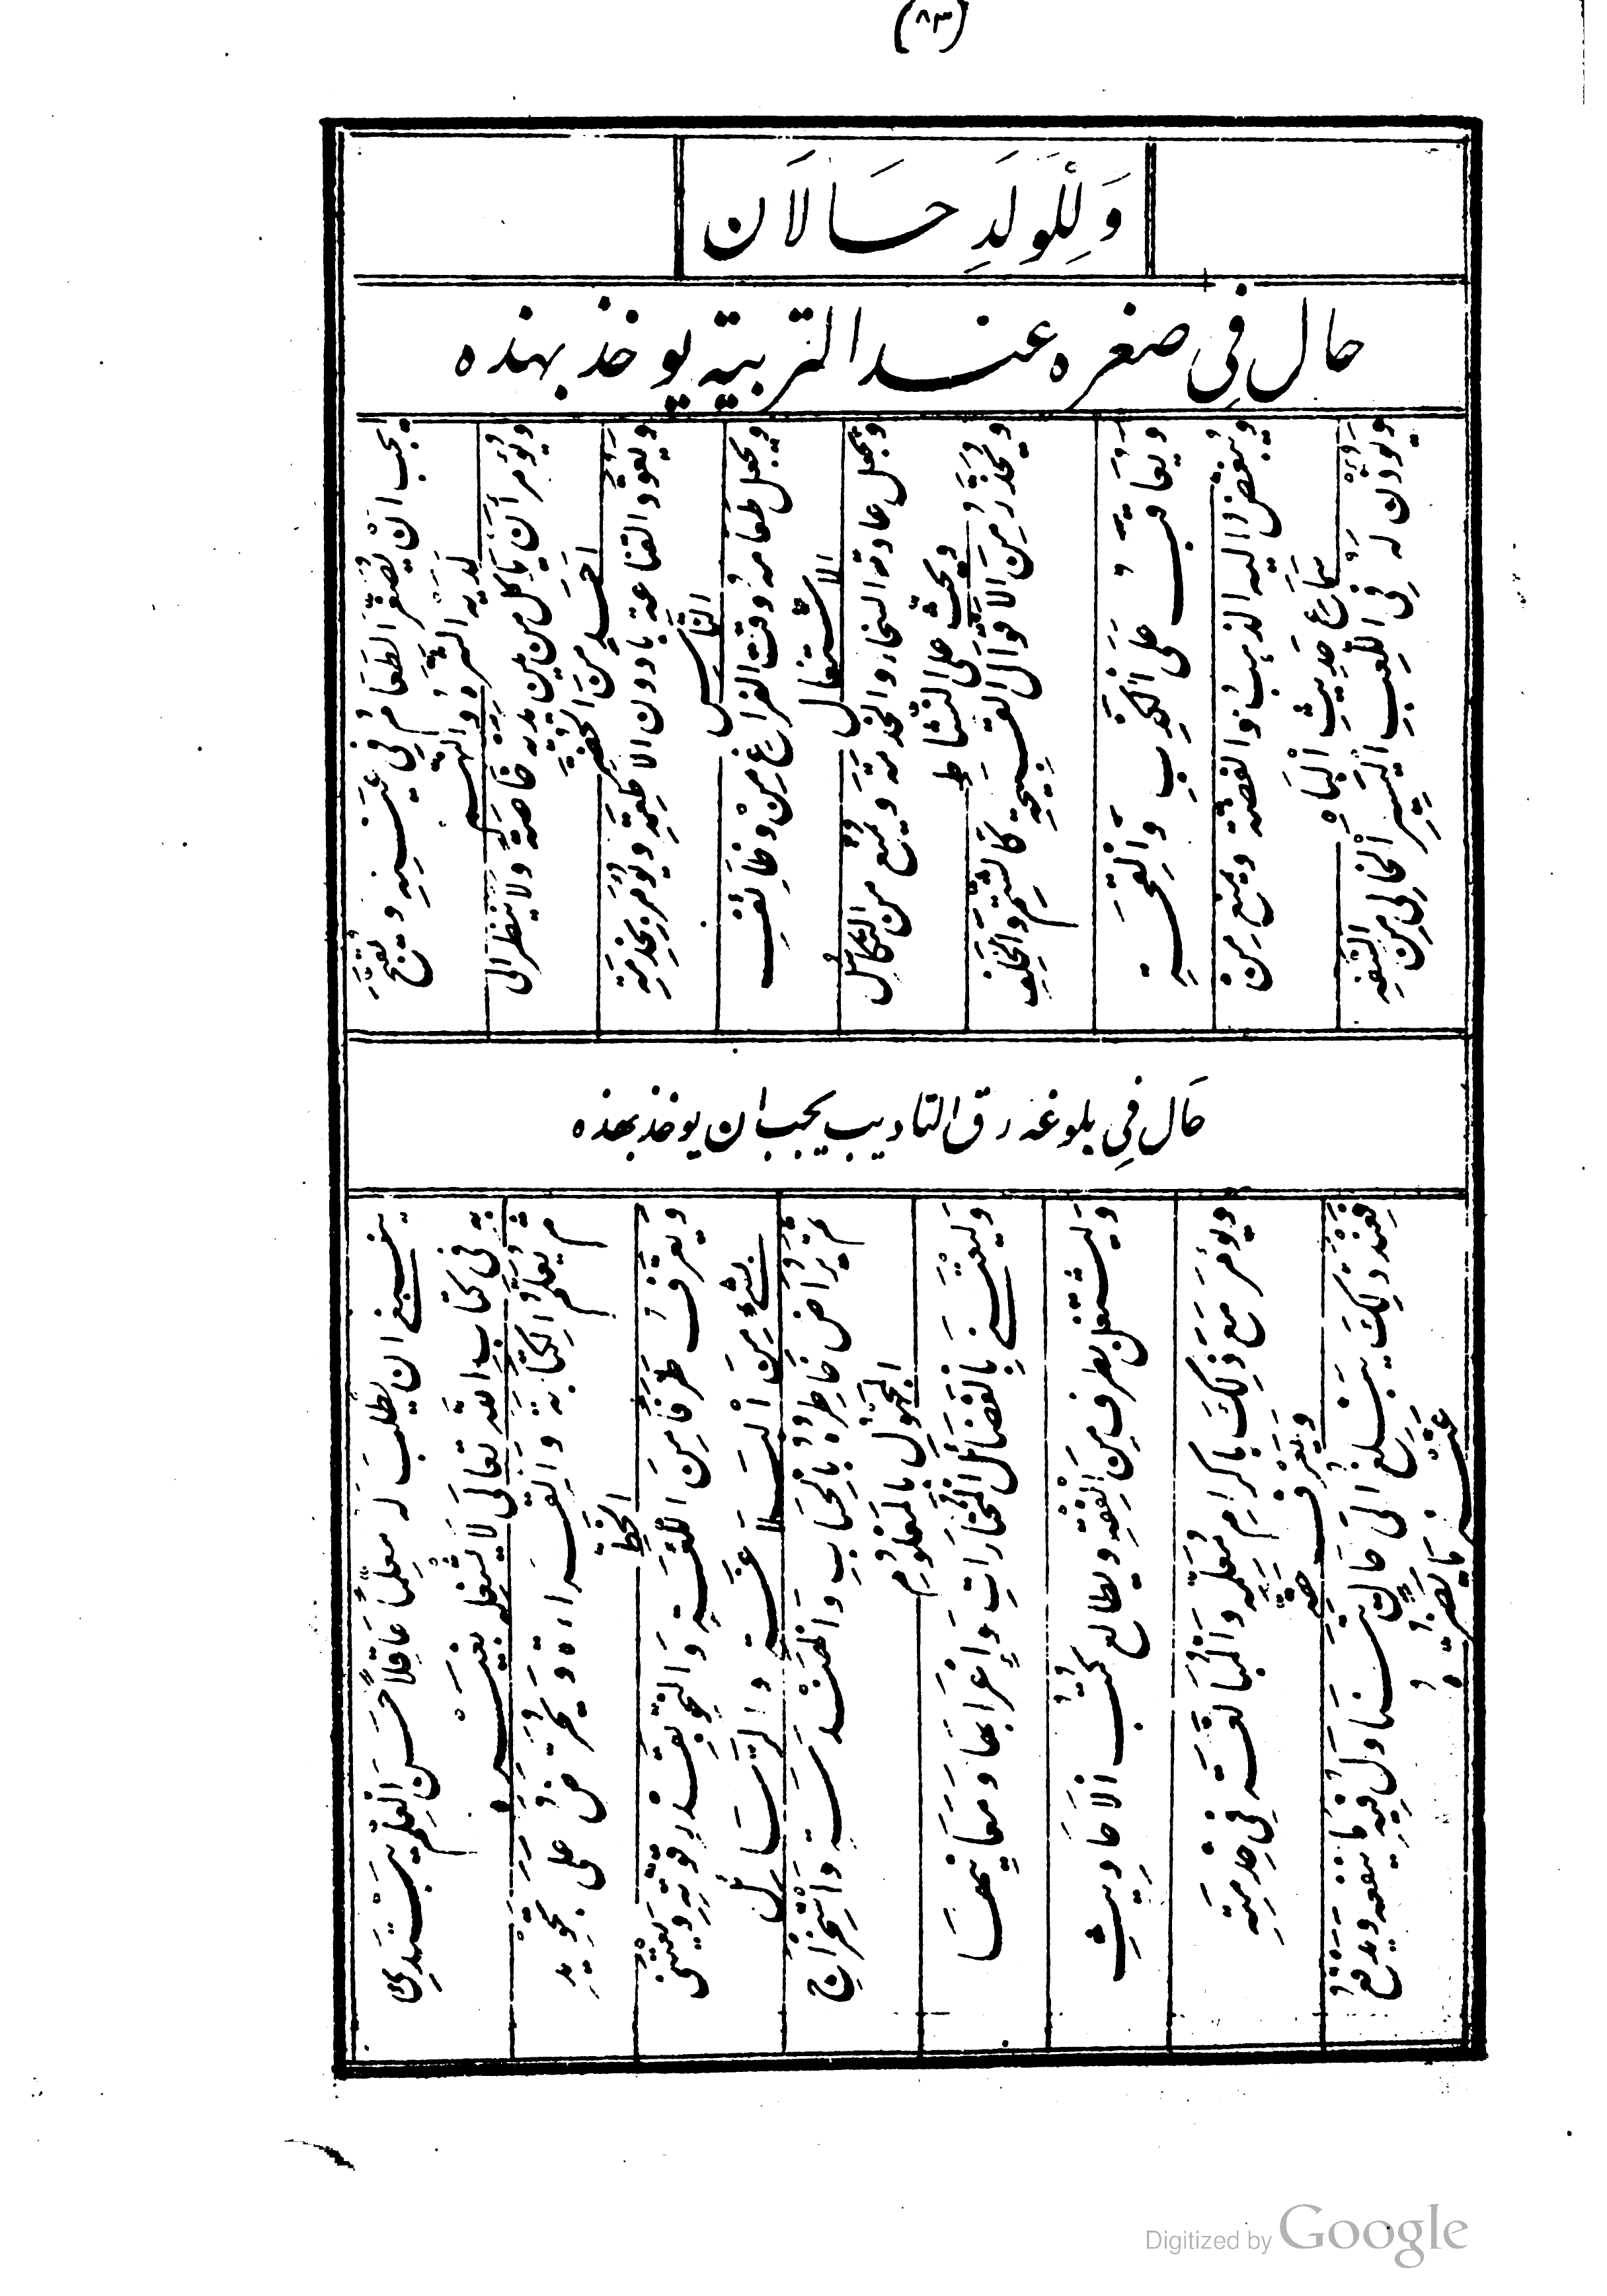 (٨٣)
وَلِلْوَلَدِ حَالَان
حال فِي صغره عند التربية يوخذ بهذه
يجب ان يُصَغَّر الطعام فِي عينيه ويقبح
لديه الشره والنهم
ويُؤمر أن يأكل من بين يديه خاصة ولا ينظر الى
احد من الحضر
ويعود القناعة بادون الاطعمة ويؤمر بخدمة
الناس
ويجعل طعامه وقت الفراغ من وظائف
الاشتغال
ويجعل عادته السخاء والخدمة ويمنع من التكاسل
ويحث على النشاط
ويحذر من الاقوال القبيحة كالشتم والحلف
ويعاقب على الكذب والقحة
ويبغض اليه الذهب والفضة ويمنع من
سماع حديث الباه
ويؤذن له في اللعب اليسير الخالي من
السفه
حَال فِي بلوغه رق التاديب يجب ان يوخذ بهذه
ينبغي ان يطلب له معلمًا عاقلًا حسن العلم يبتدئ
به في كتاب الله تعالى لا يشغله بغيره
ثم يعلم الكتابة والقراءة ويحرض على تجويد
الخط
ويعرف طرفا من اللغة والنحو بقدر قوته ويعتني
بشئ من البلاغة والرسائل
ثم يراض خاطره بالحساب والهندسة واستخراج
المجهول بالمعلوم
وليعتني بالقصائل المختارات وإعرابها ومعانيها
وليشتغل بطرف من الفقه ويطالع كتب الاحاديث
ويؤمر مع ذلك باكرام معلمه والمبالغة في خدمته
ويعرف حقه
فعند ذلك يبلغ الى حالة يتناول فيها نفعه ويدفع
عنه ما يضره
Digitized by Google